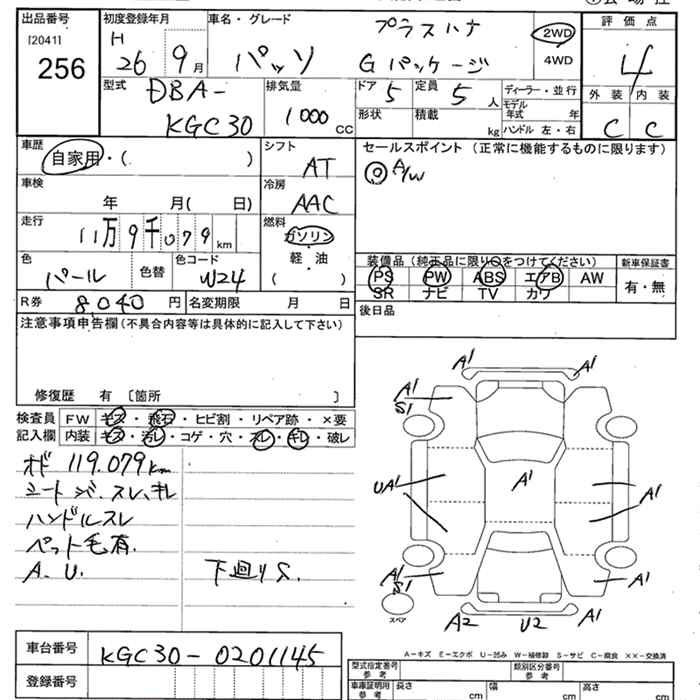 出品番号 初度登録年月 車名・グレード 評価点
[2041]
256
H 26 9月
パッソ プラスハナ Gパッケージ
2WD
4WD
4
外装 内装
C C
型式 DBA-KGC30
排気量 1000 CC
ドア 5 定員 5人
形状 積載 kg
ディーラー・並行
モデル年式 年
ハンドル 左・右
車歴 自家用・( )
シフト AT
セールスポイント (正常に機能するものに限ります)
◎A/W
車検 年 月( 日)
冷房 AAC
走行 11万9千079km
燃料 ガソリン
軽・油
( )
色 パール 色替 色コード W24
装備品 (純正品に限り○をつけてください) 新車保証書
PS PW ABS エアB AW 有・無
SR ナビ TV カワ
R券 8,040円 名変期限 月 日
後日品
注意事項申告欄(不具合内容等は具体的に記入して下さい)
修復歴 有 〔箇所 〕
検査員 FW キズ・飛石・ヒビ割・リペア跡・×要
記入欄 内装 キズ・汚レ・コゲ・穴・スレ・キレ・破レ
オド 119.079km
シートシバ、スレ、キレ
ハンドルスレ
ペット毛有.
A. U. 下廻りS.
A1 A1
A1
S1
UA1 A1 A1
A1
S1 A1
スペア
A2 U2 A1
A-キズ E-エクボ U-凹み W-補修跡 S-サビ C-腐食 ××-交換済
車台番号 KGC30-0201145
登録番号
型式指定番号 参考 類別区分番号 参考
車庫証明用 参考 長さ cm 幅 cm 高さ cm